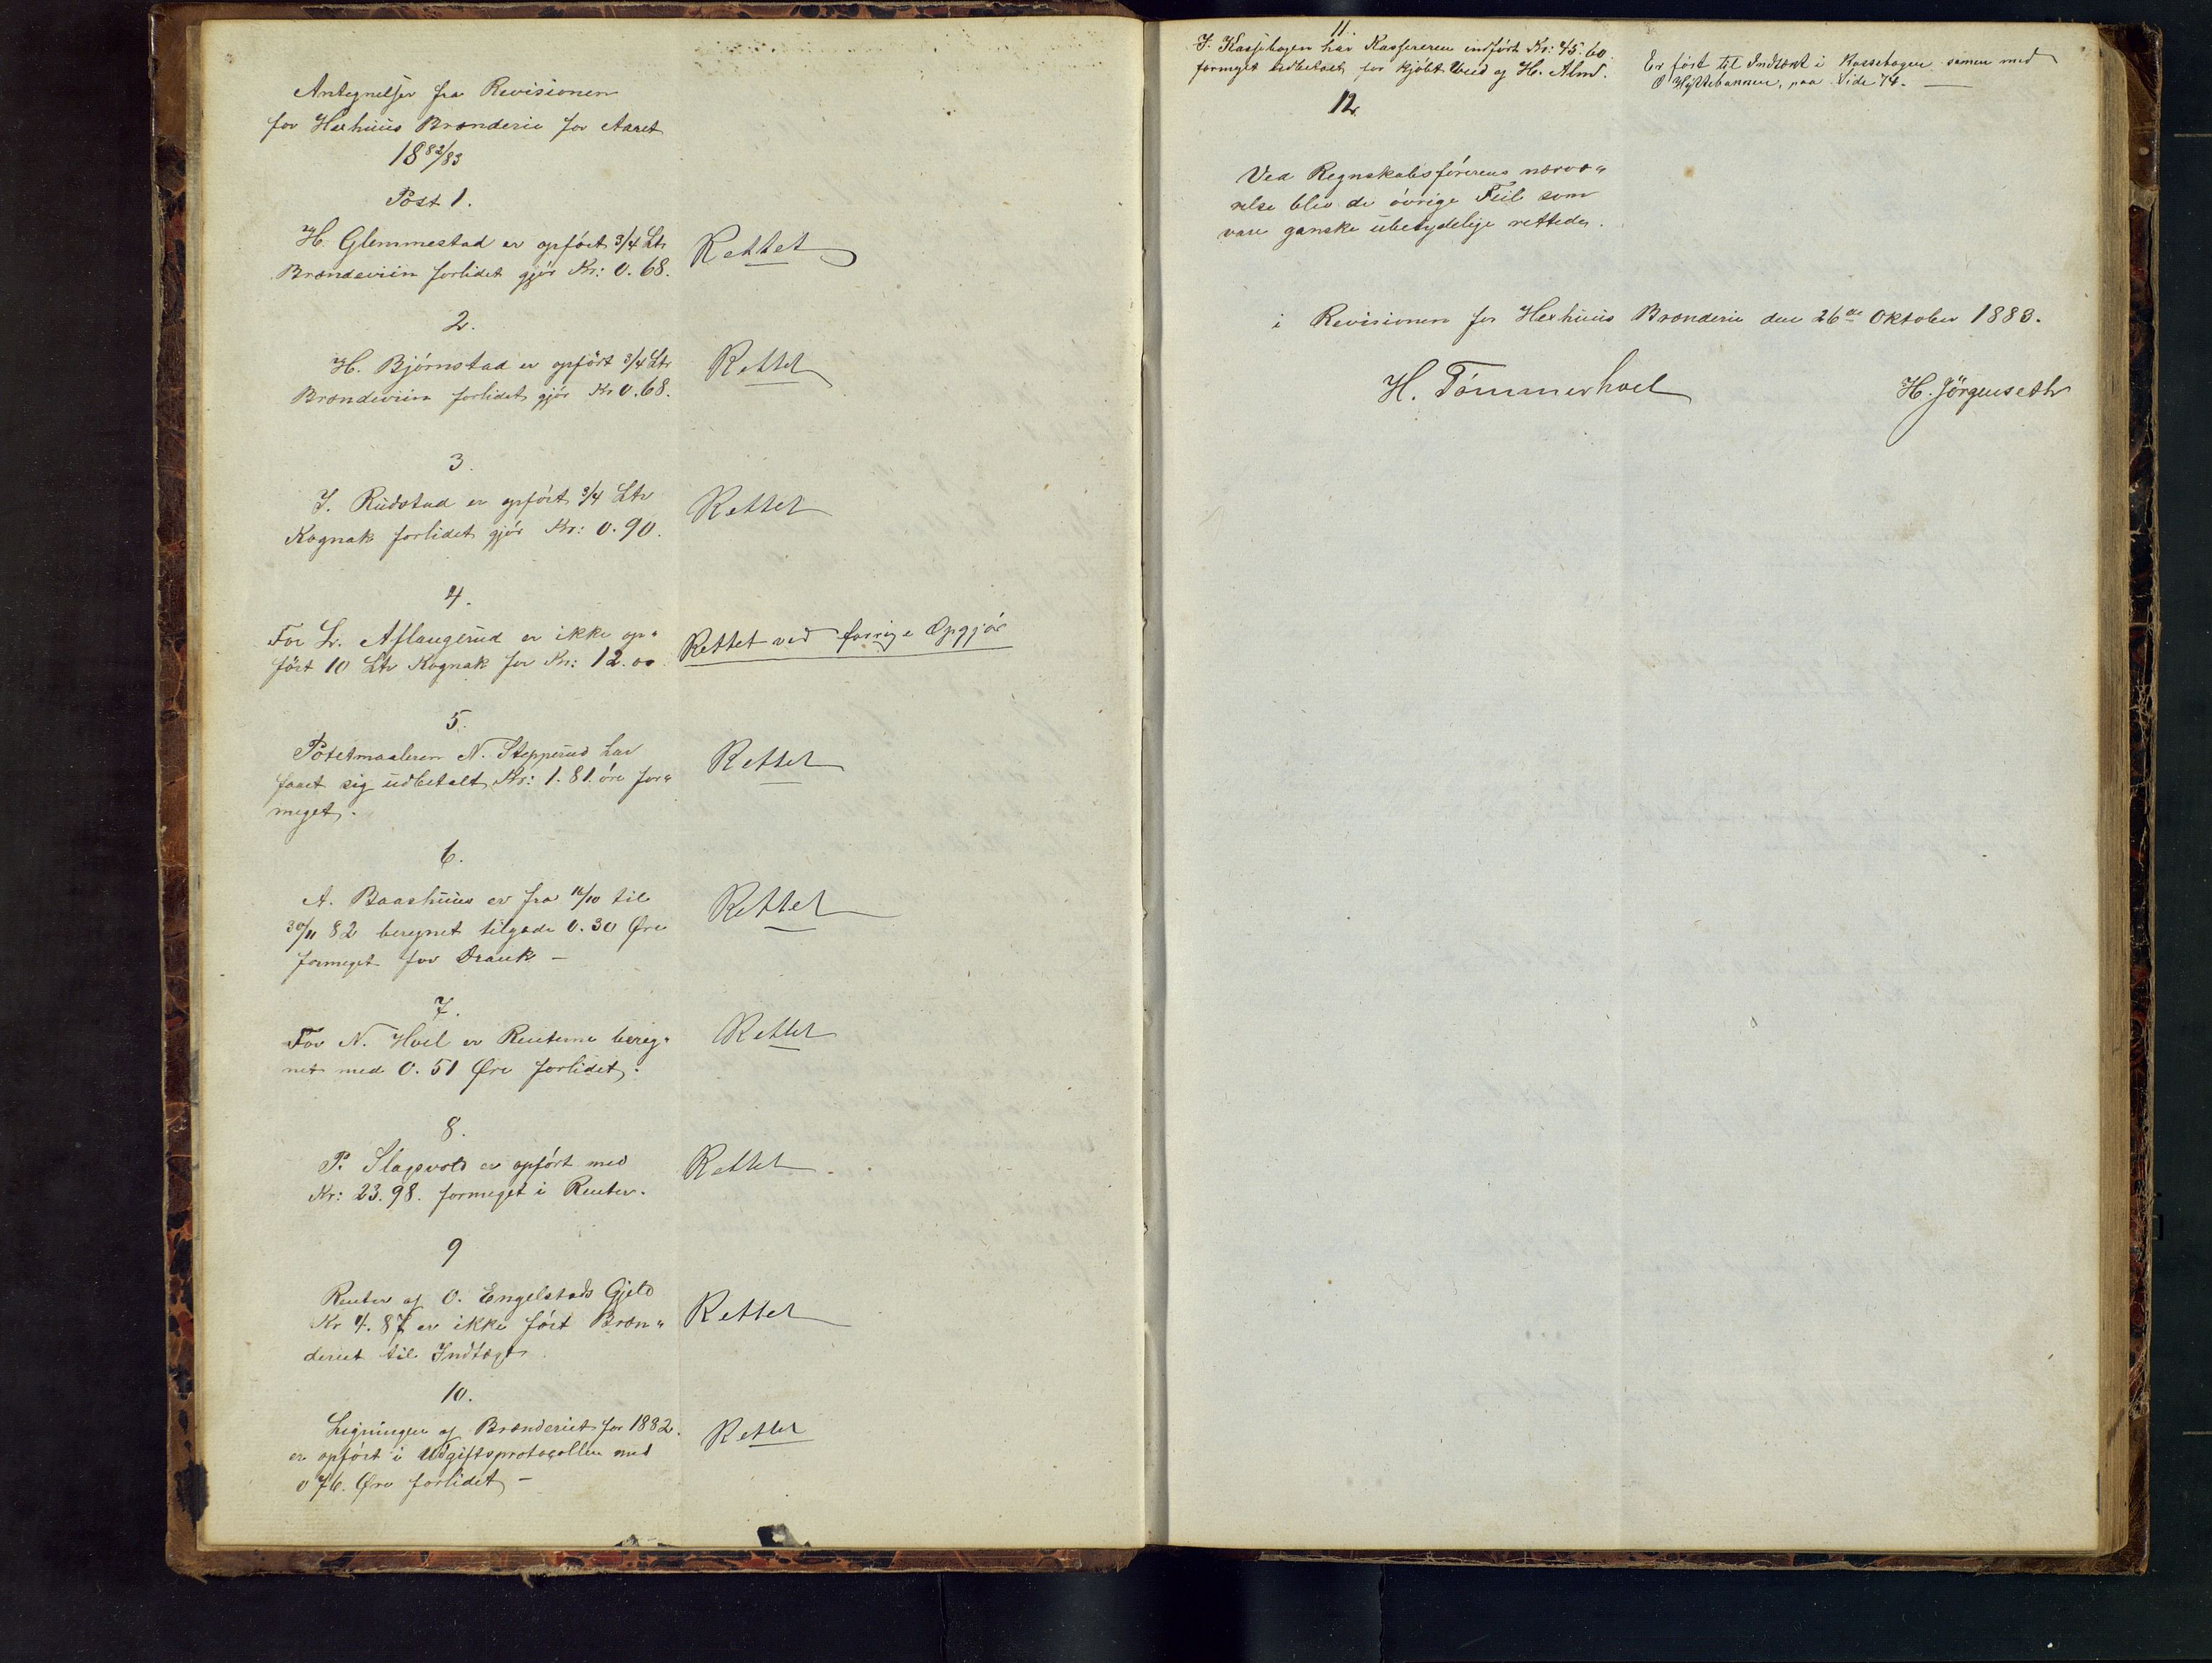 Antegnelser fra Revisionen
for Hexhuus Brænderie for Aaret
1882/83
Post 1.
H. Glemmestad er opført 3/4 Ltr
Brændeviin forlidet gjør Kr: 0.68.
Rettet
2.
H. Bjørnstad er opført 3/4 Ltr
Brændeviin forlidet gjør Kr 0.68.
Rettet
3.
J. Rudstad er opført 3/4 Ltr
Kognak forlidet gjør Kr: 0.90.
Rettet
4.
For L. Aslaugerud er ikke op„
ført 10 Ltr Kognak for Kr: 12.00
Rettet ved forrige Opgjør
5.
Potetmaaleren N. Stepperud har
faaet sig udbetalt Kr: 1.81 øre for„
meget.
Rettet
6.
A. Baashuus er fra 16/10 til
30/11 82 beregnet tilgode 0.30 Øre
formeget for Drank –
Rettet
7.
For N. Hoel er Renterne bereg„
net med 0.51 Øre forlidet.
Rettet
8.
P. Slagsvold er opført med
Kr: 23.98. formeget i Renter.
Rettet
9
Renter af O. Engelstads Gjeld
Kr 4.87 er ikke ført Bræn„
deriet til Indtægt
Rettet
10.
Ligningen af Brænderiet for 1882.
er opført i Udgiftsprotocollen med
0 76. Øre forlidet –
Rettet
11.
I Kassebogen har Kassereren indført Kr: 45.60
formeget udbetalt for kjøbt Ved af H. Alm.
Er ført til Indtækt i Kassebogen samen med
O Hyttebannen, paa Side 74. —
12.
Ved Regnskabsførerens nærvæ„
relse blev de øvrige Feil som
vare ganske ubetydelige rettede.
i Revisionen for Hexhuus Brænderie den 26de Oktober 1883.
H. Tømmerhoel
H. Jørgenseth